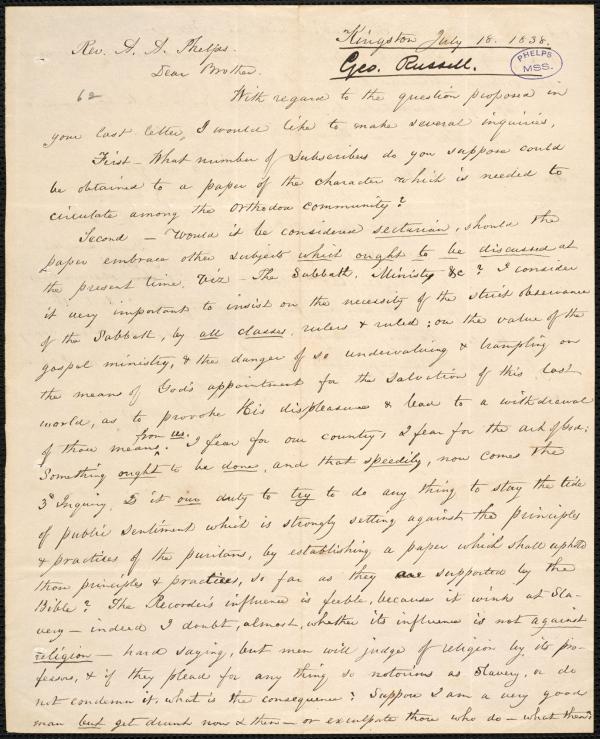 Kingston July 18. 1838.
Rev. A. A. Phelps.
Geo. Russell.
PHELPS
MSS.
Dear Brother.
62
With regard to the question proposed in
your last letter, I would like to make several inquiries,
First - What number of subscribers do you suppose could
be obtained to a paper of the character which is needed to
circulate among the Orthodox community?
Second - Would it be considered sectarian, should the
paper embrace other subjects which ought to be discussed at
the present time, viz - The Sabbath, Ministry &c? I consider
it very important to insist on the necessity of the strict observance
of the Sabbath, by all classes, rulers & ruled; on the value of the
gospel ministry, & the danger of so undervaluing & trampling on
the means of God's appointment for the Salvation of this lost
world, as to provoke His displeasure & lead to a withdrawal
of those means from us. I fear for our country, I fear for the ark of God;
Something ought to be done, and that speedily, now comes the
3d Inquiry. Is it our duty to try to do any thing to stay the tide
of public sentiment which is strongly setting against the principles
& practices of the puritans, by establishing a paper which shall uphold
those principles & practices, so far as they are supported by the
Bible? The Recorder's influence is feeble, because it winks at Sla-
very - indeed I doubt, almost, whether its influence is not against
religion - hard saying, but men will judge of religion by its pro-
fessors, & if they plead for any thing so notorious as Slavery, or do
not condemn it, what is the consequence? Suppose I am a very good
man but get drunk now & then - or exculpate those who do - what then?